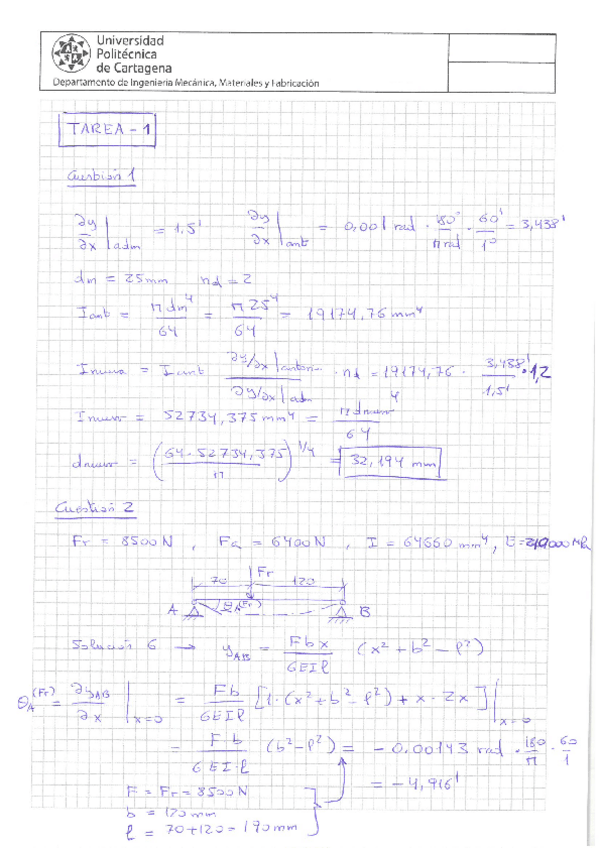 Universidad
Politécnica
de Cartagena
Departamento de Ingeniería Mecánica, Materiales y Fabricación
TAREA - 1
Cuestión 1
∂y/∂x|adm = 1,5'   ∂y/∂x|ant = 0,001 rad · 180°/π rad · 60'/1° = 3,438'
dm = 25 mm   nd = 2
Iant = π dm⁴/64 = π 25⁴/64 = 19174,76 mm⁴
Inueva = Iant · ∂y/∂x|anterior / ∂y/∂x|adm · nd = 19174,76 · 3,438'/1,5' · 1,2
Inuev = 52734,375 mm⁴ = π dnuev⁴/64
dnuev = (64·52734,375/π)^1/4 = 32,194 mm
Cuestión 2
Fr = 8500 N , Fa = 6400 N , I = 64660 mm⁴,
Fr
70   120
A   θA(Fr)   B
Solución 6 → yAB = Fbx/6EIl (x² + b² - l²)
θA(Fr) = ∂yAB/∂x|x=0 = Fb/6EIl [1·(x² + b² - l²) + x·2x]|x=0
= Fb/6EI·l (b² - l²) = - 0,00143 rad · 180/π · 60/1
= - 4,916'
F = Fr = 8500 N
b = 120 mm
l = 70 + 120 = 190 mm